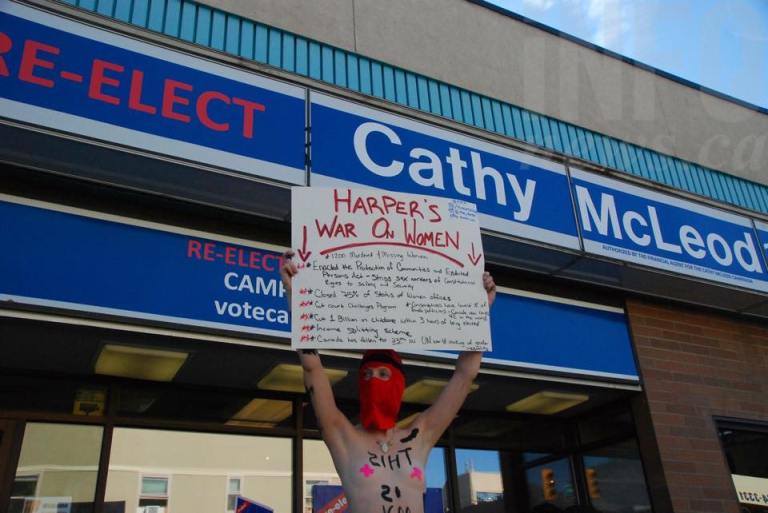 RE-ELECT
Cathy
McLeod
AUTHORIZED BY THE FINANCIAL AGENT FOR THE CATHY MCLEOD CAMPAIGN
RE-ELECT
CAM
voteca
HARPER'S
WAR ON WOMEN
1200 Murdered & Missing Women
Enacted the Protection of Communities and Exploited
Persons Act - strips sex workers of Constitutional
Rights to safety and security
Closed 75% of Status of Women offices
Cut court Challenges Program
Cut 1 Billion in Childcare within 3 hours of being elected
Income splitting scheme
Canada has fallen to
UN world ranking of gender
THIS
IS
INFO
news.ca